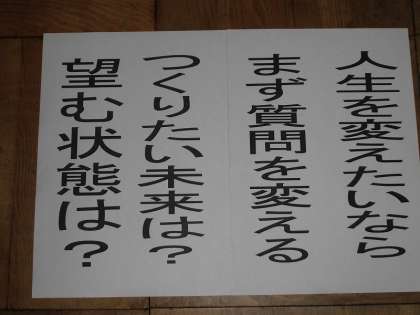 人生を変えたいなら
まず質問を変える
つくりたい未来は?
望む状態は?